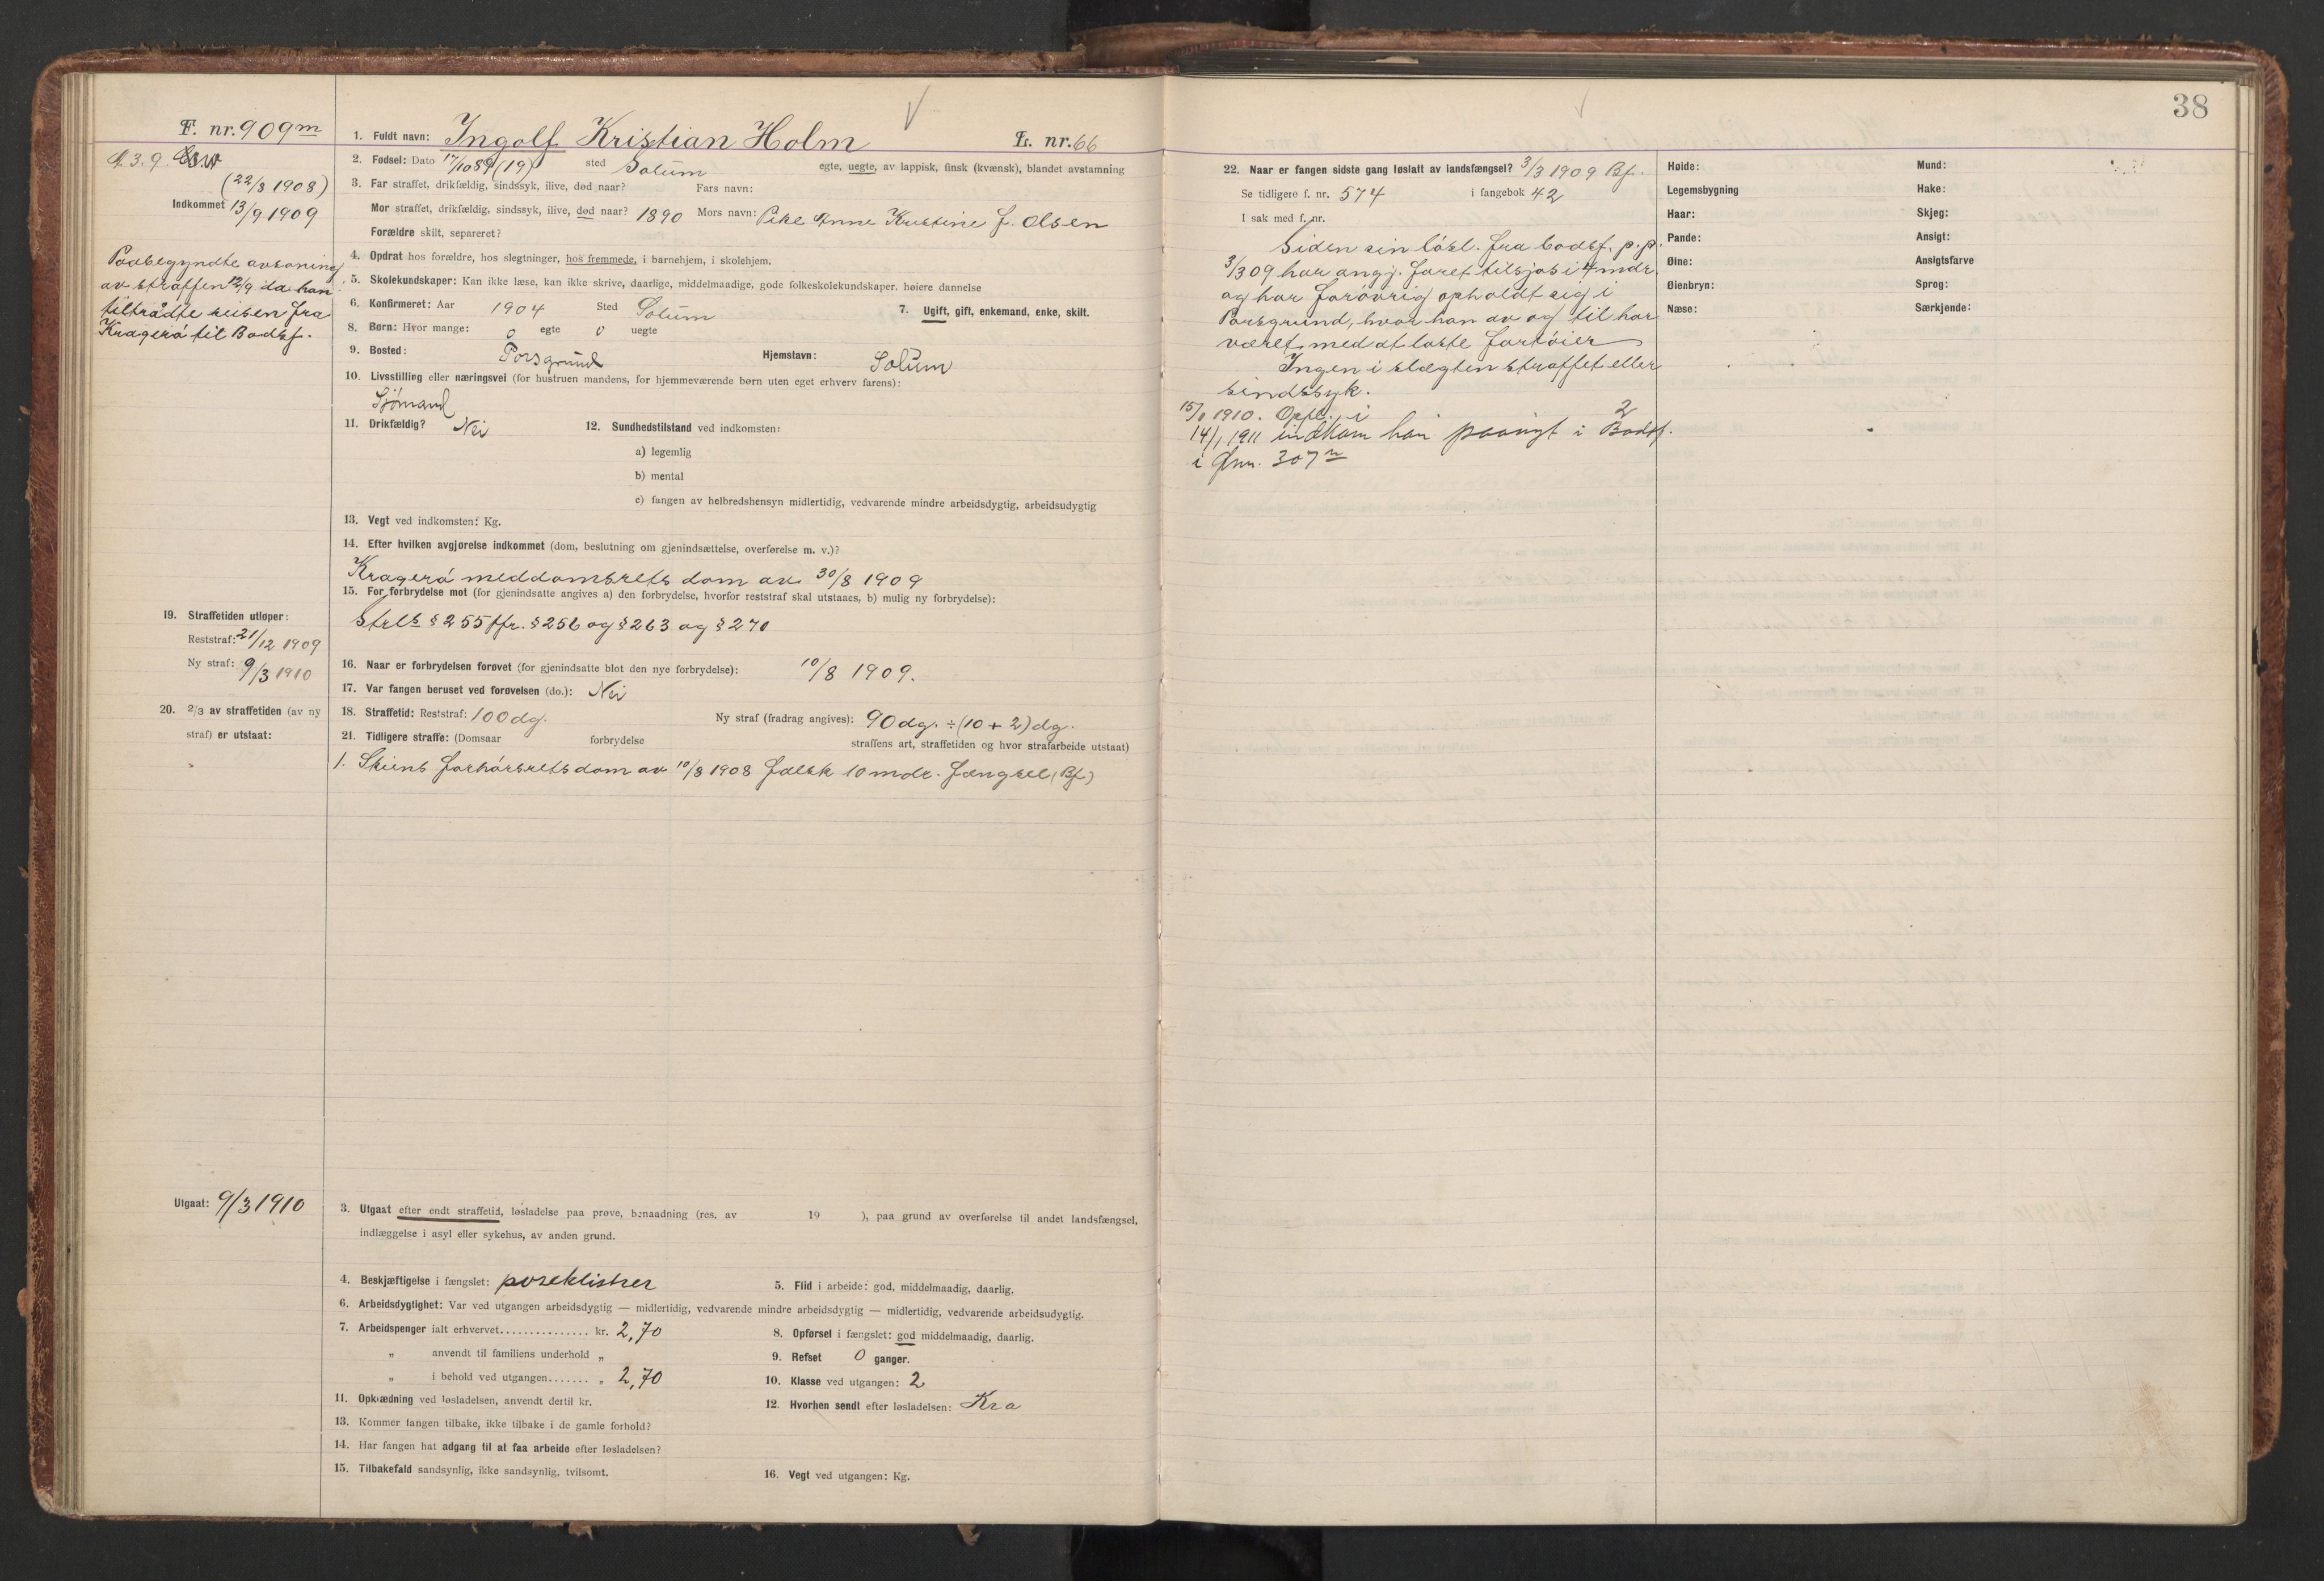 38
F. nr. 909m
1. Fuldt navn: Ingolf Kristian Holm L. nr. 66
A. 3. 9.
2. Fødsel: Dato 17/10 89 (19) sted Solum egte, uegte, av lappisk, finsk (kvænsk), blandet avstamning
(22/8 1908)
Indkommet 13/9 1909
3. Far straffet, drikfældig, sindssyk, ilive, død naar? Fars navn:
Mor straffet, drikfældig, sindssyk, ilive, død naar? 1890 Mors navn: Pike Anne Kristine J. Olsen
Forældre skilt, separeret?
Paabegyndte avsoning
av straffen 12/9 da han
tiltraadte reisen fra
Kragerø til Bodsf.
4. Opdrat hos forældre, hos slegtninger, hos fremmede, i barnehjem, i skolehjem.
5. Skolekundskaper: Kan ikke læse, kan ikke skrive, daarlige, middelmaadige, gode folkeskolekundskaper. høiere dannelse
6. Konfirmeret: Aar 1904 Sted Solum 7. Ugift, gift, enkemand, enke, skilt.
8. Børn: Hvor mange: 0 egte 0 uegte
9. Bosted: Porsgrund Hjemstavn: Solum
10. Livsstilling eller næringsvei (for hustruen mandens, for hjemmeværende børn uten eget erhverv farens):
Sjømand
11. Drikfældig? Nei 12. Sundhedstilstand ved indkomsten:
a) legemlig
b) mental
c) fangen av helbredshensyn midlertidig, vedvarende mindre arbeidsdygtig, arbeidsudygtig
13. Vegt ved indkomsten: Kg.
14. Efter hvilken avgjørelse indkommet (dom, beslutning om gjenindsættelse, overførelse m. v.)?
Kragerø meddomsrets dom av 30/8 1909
15. For forbrydelse mot (for gjenindsatte angives a) den forbrydelse, hvorfor reststraf skal utstaaes, b) mulig ny forbrydelse):
Strls § 255 jfr. § 256 og § 263 og § 270
19. Straffetiden utløper:
Reststraf: 21/12 1909
Ny straf: 9/3 1910
16. Naar er forbrydelsen forøvet (for gjenindsatte blot den nye forbrydelse): 10/8 1909.
17. Var fangen beruset ved forøvelsen (do.): Nei
20. 2/3 av straffetiden (av ny
straf) er utstaat:
18. Straffetid: Reststraf: 100 dg. Ny straf (fradrag angives): 90 dg. ÷ (10 + 2) dg.
21. Tidligere straffe: (Domsaar forbrydelse straffens art, straffetiden og hvor strafarbeide utstaat)
1. Skiens forhørsrets dom av 10/8 1908 falsk 10 mdr. fængsel (Bf.)
Utgaat: 9/3 1910
3. Utgaat efter endt straffetid, løsladelse paa prøve, benaadning (res. av 19 ), paa grund av overførelse til andet landsfængsel,
indlæggelse i asyl eller sykehus, av anden grund.
4. Beskjæftigelse i fængslet: poseklistrer 5. Flid i arbeide: god, middelmaadig, daarlig.
6. Arbeidsdygtighet: Var ved utgangen arbeidsdygtig — midlertidig, vedvarende mindre arbeidsdygtig — midlertidig, vedvarende arbeidsudygtig.
7. Arbeidspenger ialt erhvervet............... kr. 2,70 8. Opførsel i fængslet: god middelmaadig, daarlig.
„ anvendt til familiens underhold „ 9. Refset 0 ganger.
„ i behold ved utgangen....... „ 2,70 10. Klasse ved utgangen: 2
11. Opklædning ved løsladelsen, anvendt dertil kr. 12. Hvorhen sendt efter løsladelsen: Kra
13. Kommer fangen tilbake, ikke tilbake i de gamle forhold?
14. Har fangen hat adgang til at faa arbeide efter løsladelsen?
15. Tilbakefald sandsynlig, ikke sandsynlig, tvilsomt. 16. Vegt ved utgangen: Kg.
22. Naar er fangen sidste gang løslatt av landsfængsel? 3/3 1909 Bf.
Se tidligere f. nr. 574 i fangebok 42
I sak med f. nr.
Siden sin løsl. fra bodsf. p. p.
3/3 09 har angj. faret tilsjøs i 4 mdr.
og har forøvrig opholdt sig i
Porsgrund, hvor han av og til har
været med at laste fartøier
Ingen i slægten straffet eller
sindssyk.
1910. Opfl. i 2
14/1 1911 indkom han paanyt i Bodsf.
i fnr. 307n
Høide: Mund:
Legemsbygning Hake:
Haar: Skjeg:
Pande: Ansigt:
Øine: Ansigtsfarve
Øienbryn: Sprog:
Næse: Særkjende: